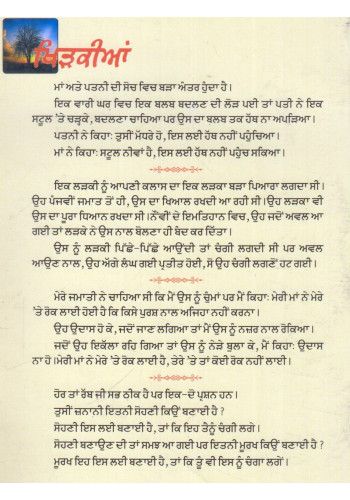 ਖਿੜਕੀਆਂ
ਮਾਂ ਅਤੇ ਪਤਨੀ ਦੀ ਸੋਚ ਵਿਚ ਬੜਾ ਅੰਤਰ ਹੁੰਦਾ ਹੈ।
ਇਕ ਵਾਰੀ ਘਰ ਵਿਚ ਇਕ ਬਲਬ ਬਦਲਣ ਦੀ ਲੋੜ ਪਈ ਤਾਂ ਪਤੀ ਨੇ ਇਕ
ਸਟੂਲ 'ਤੇ ਚੜ੍ਹਕੇ, ਬਦਲਣਾ ਚਾਹਿਆ ਪਰ ਉਸ ਦਾ ਬਲਬ ਤਕ ਹੱਥ ਨਾ ਅਪੜਿਆ।
ਪਤਨੀ ਨੇ ਕਿਹਾ: ਤੁਸੀਂ ਮੱਧਰੇ ਹੋ, ਇਸ ਲਈ ਹੱਥ ਨਹੀਂ ਪਹੁੰਚਿਆ।
ਮਾਂ ਨੇ ਕਿਹਾ: ਸਟੂਲ ਨੀਵਾਂ ਹੈ, ਇਸ ਲਈ ਹੱਥ ਨਹੀਂ ਪਹੁੰਚ ਸਕਿਆ।
ਇਕ ਲੜਕੀ ਨੂੰ ਆਪਣੀ ਕਲਾਸ ਦਾ ਇਕ ਲੜਕਾ ਬੜਾ ਪਿਆਰਾ ਲਗਦਾ ਸੀ।
ਉਹ ਪੰਜਵੀਂ ਜਮਾਤ ਤੋਂ ਹੀ, ਉਸ ਦਾ ਖਿਆਲ ਰਖਦੀ ਆ ਰਹੀ ਸੀ। ਉਹ ਲੜਕਾ ਵੀ
ਉਸ ਦਾ ਪੂਰਾ ਧਿਆਨ ਰਖਦਾ ਸੀ। ਨੌਂਵੀਂ ਦੇ ਇਮਤਿਹਾਨ ਵਿਚ, ਉਹ ਜਦੋਂ ਅਵਲ ਆ
ਗਈ ਤਾਂ ਲੜਕੇ ਨੇ ਉਸ ਨਾਲ ਬੋਲਣਾ ਹੀ ਬੰਦ ਕਰ ਦਿੱਤਾ।
ਉਸ ਨੂੰ ਲੜਕੀ ਪਿੱਛੇ-ਪਿੱਛੇ ਆਉਂਦੀ ਤਾਂ ਚੰਗੀ ਲਗਦੀ ਸੀ ਪਰ ਅਵਲ
ਆਉਣ ਨਾਲ, ਉਹ ਅੱਗੇ ਲੰਘ ਗਈ ਪ੍ਰਤੀਤ ਹੋਈ, ਸੋ ਉਹ ਚੰਗੀ ਲਗਣੋਂ ਹਟ ਗਈ।
ਮੇਰੇ ਜਮਾਤੀ ਨੇ ਚਾਹਿਆ ਸੀ ਕਿ ਮੈਂ ਉਸ ਨੂੰ ਚੁੰਮਾਂ ਪਰ ਮੈਂ ਕਿਹਾ: ਮੇਰੀ ਮਾਂ ਨੇ ਮੇਰੇ
'ਤੇ ਰੋਕ ਲਾਈ ਹੋਈ ਹੈ ਕਿ ਕਿਸੇ ਪੁਰਸ਼ ਨਾਲ ਅਜਿਹਾ ਨਹੀਂ ਕਰਨਾ।
ਉਹ ਉਦਾਸ ਹੋ ਕੇ, ਜਦੋਂ ਜਾਣ ਲਗਿਆ ਤਾਂ ਮੈਂ ਉਸ ਨੂੰ ਨਜ਼ਰ ਨਾਲ ਰੋਕਿਆ।
ਜਦੋਂ ਉਹ ਇਕੱਲਾ ਰਹਿ ਗਿਆ ਤਾਂ ਉਸ ਨੂੰ ਨੇੜੇ ਬੁਲਾ ਕੇ, ਮੈਂ ਕਿਹਾ: ਉਦਾਸ
ਨਾ ਹੋ।ਮੇਰੀ ਮਾਂ ਨੇ ਮੇਰੇ 'ਤੇ ਰੋਕ ਲਾਈ ਹੈ, ਤੇਰੇ 'ਤੇ ਤਾਂ ਕੋਈ ਰੋਕ ਨਹੀਂ ਲਾਈ।
ਹੋਰ ਤਾਂ ਰੱਬ ਜੀ ਸਭ ਠੀਕ ਹੈ ਪਰ ਇਕ-ਦੋ ਪ੍ਰਸ਼ਨ ਹਨ।
ਤੁਸੀਂ ਜ਼ਨਾਨੀ ਇਤਨੀ ਸੋਹਣੀ ਕਿਉਂ ਬਣਾਈ ਹੈ ?
ਸੋਹਣੀ ਇਸ ਲਈ ਬਣਾਈ ਹੈ, ਤਾਂ ਕਿ ਇਹ ਤੈਨੂੰ ਚੰਗੀ ਲਗੇ।
ਸੋਹਣੀ ਬਣਾਉਣ ਦੀ ਤਾਂ ਸਮਝ ਆ ਗਈ ਪਰ ਇਤਨੀ ਮੂਰਖ ਕਿਉਂ ਬਣਾਈ ਹੈ ?
ਮੂਰਖ ਇਹ ਇਸ ਲਈ ਬਣਾਈ ਹੈ, ਤਾਂ ਕਿ ਤੂੰ ਵੀ ਇਸ ਨੂੰ ਚੰਗਾ ਲਗੇਂ।